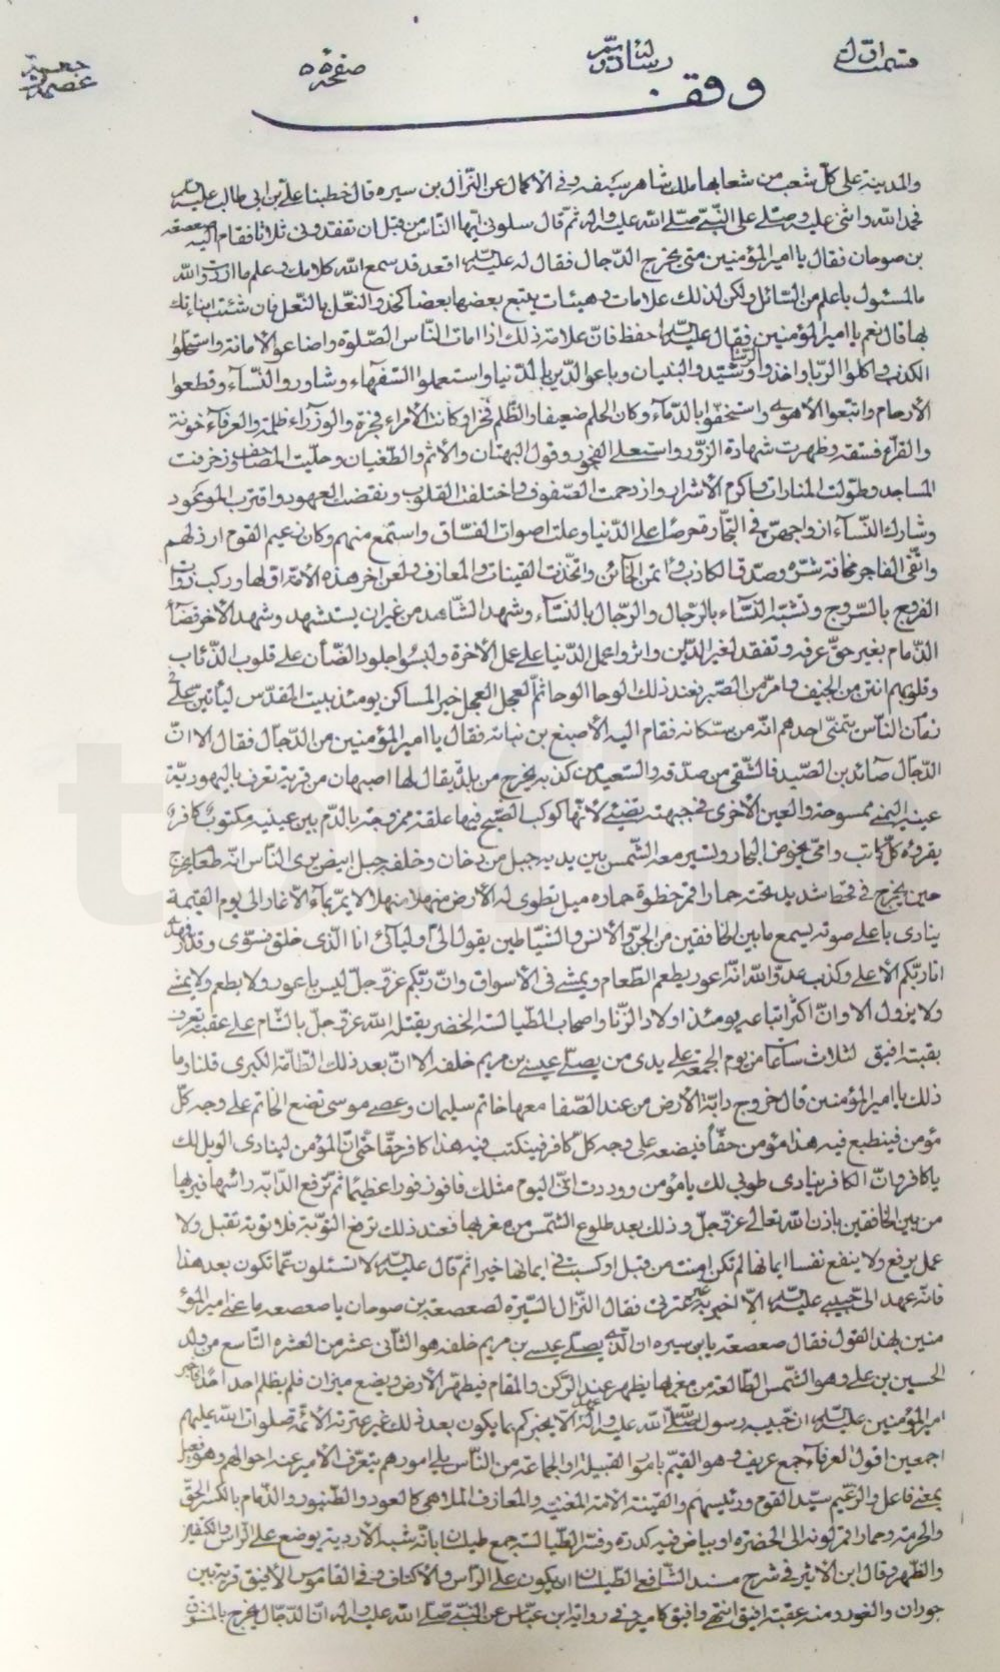 وقف
والمدينة على كلّ شعب من شعابها ملك شاهر سيفه وفى الاكمال عن النّزال بن سبره قال خطبنا علىّ بن ابى طالب عليه
فحمد الله واثنى عليه وصلّى على النّبىّ صلّى الله عليه واله ثمّ قال سلونى ايّها النّاس من قبل ان تفقدونى ثلاثا فقام اليه صعصعة
بن صوحان فقال يا امير المؤمنين متى يخرج الدّجال فقال له عليه السّلام اقعد قد سمع الله كلامك وعلم ما اردت والله
ما المسئول باعلم من السّائل ولكن لذلك علامات وهيئات يتبع بعضها بعضا كحذو النّعل بالنّعل فان شئت انباتك
بها قال نعم يا امير المؤمنين فقال عليه السّلام احفظ فانّ علامة ذلك اذا امات النّاس الصّلوة واضاعوا الامانة واستحلّوا
الكذب واكلوا الرّبا واخذوا الرّشا وشيّدوا البنيان وباعوا الدّين بالدّنيا واستعملوا السّفهاء وشاوروا النّسآء وقطعوا
الأرحام واتّبعوا الأهوى واستخفّوا بالدّمآء وكان الحلم ضعيفا والظّلم فخرا وكانت الأمراء فجرة والوزراء ظلمة والعرفآء خونة
والقرآء فسقة وظهرت شهادة الزّور واستعلى الفجور وقول البهتان والأثم والطّغيان وحلّيت المصاحف وزخرفت
المساجد وطوّلت المنارات واكرم الأشرار وازدحمت الصّفوف واختلفت القلوب ونقضت العهود واقترب الموعود
وشارك النّسآء ازواجهنّ فى التّجارة حرصا على الدّنيا وعلت اصوات الفسّاق واستمع منهم وكان زعيم القوم ارذلهم
واتّقى الفاجر مخافة شرّه وصدّق الكاذب وائتمن الخائن واتّخذت القينات والمعازف ولعن اخر هذه الأمّة اوّلها وركب ذوات
الفروج بالسّروج وتشبّه النّسآء بالرّجال والرّجال بالنّسآء وشهد الشّاهد من غير ان يستشهد وشهد الأخر قضآ
الذّمام بغير حقّ عرفه وتفقّه لغير الدّين واثروا عمل الدّنيا على عمل الأخرة ولبسوا جلود الضّأن على قلوب الذّئاب
وقلوبهم انتن من الجيف وامرّ من الصّبر فعند ذلك الوحا الوحا ثمّ العجل العجل خير المساكن يومئذ بيت المقدّس ليأتينّ على
زمان النّاس يتمنّى احدهم انّه من سكّانه فقام اليه الأصبغ بن نباتة فقال يا امير المؤمنين من الدّجال فقال الا انّ
الدّجال صائد بن الصّيد فالشّقى من صدّقه والسّعيد من كذبه يخرج من بلدة يقال لها اصبهان من قرية تعرف باليهوديّة
عينه اليمنى ممسوحة والعين الأخرى فى جبهته تضيئ كأنّها كوكب الصّبح فيها علقة ممزوجة بالدّم بين عينيه مكتوب كافر
يقرؤه كلّ كاتب وامّى يخوض البحار وتسير معه الشّمس بين يديه جبل من دخان وخلفه جبل ابيض يرى النّاس انّه طعام يخرج
حين يخرج فى قحط شديد تحته حمار اقمر خطوة حماره ميل تطوى له الأرض منهلا منهلا لا يمرّ بمآء الا غار الى يوم القيمة
ينادى باعلى صوته يسمع ما بين الخافقين من الجنّ والأنس والشّياطين يقول الىّ اوليائى انا الّذى خلق فسوّى وقدّر فهدى
انا ربّكم الأعلى وكذب عدوّ الله انّه اعور يطعم الطّعام ويمشى فى الأسواق وانّ ربّكم عزّ وجلّ ليس باعور ولا يطعم ولا يمشى
ولا يزول الا وانّ اكثر اتباعه يومئذ اولاد الزّنا واصحاب الطّيالسة الخضر يقتله الله عزّ وجلّ بالشّام على عقبة تعرف
بعقبة افيق لثلاث ساعات من يوم الجمعة على يدى من يصلّى عيسى بن مريم خلفه الا انّ بعد ذلك الطّامّة الكبرى قلنا وما
ذلك يا امير المؤمنين قال خروج دابّة الأرض من عند الصّفا معها خاتم سليمان وعصى موسى تضع الخاتم على وجه كلّ
مؤمن فينطبع فيه هذا مؤمن حقّا وتضعه على وجه كلّ كافر فينكتب فيه هذا كافر حقّا حتّى انّ المؤمن لينادى الويل لك
يا كافر وانّ الكافر ينادى طوبى لك يا مؤمن وددت انّى اليوم مثلك فافوز فوزا عظيما ثمّ ترفع الدّابّة رأسها فيريها
من بين الخافقين باذن الله تعالى عزّ وجلّ وذلك بعد طلوع الشّمس من مغربها فعند ذلك ترفع التّوبة فلا توبة تقبل ولا
عمل يرفع ولا ينفع نفسا ايمانها لم تكن امنت من قبل او كسبت فى ايمانها خيرا ثمّ قال عليه السّلام لا تسئلون عمّا تكون بعد هذا
فانّه عهد الىّ حبيبى عليه السّلام الّا اخبر به غير عترتى فقال النّزال السّبره لصعصعة بن صوحان يا صعصعه ما عنى امير المؤ
منين بهذا القول فقال صعصعة يابن سبره ان الّذى يصلّى عيسى بن مريم خلفه هو الثّانى عشر من العترة التّاسع من ولد
الحسين بن على وهو الشّمس الطّالعة من مغربها يظهر عند الرّكن والمقام فيطهّر الأرض ويضع ميزان فلم يظلم احد احدا فاخبر
امير المؤمنين عليه السّلام ان حبيبه رسول الله صلّى الله عليه واله عهد الّا يخبركم بما يكون بعد ذلك غير عترته الأئمّة صلوات الله عليهم
اجمعين اقول العرفآء جمع عريف وهو القيّم بامور القبيلة او الجماعة من النّاس يلى امورهم يتعرّف الأمير عنه احوالهم وهو فعيل
بمعنى فاعل والزّعيم سيّد القوم ورئيسهم والقينة الأمة المغنّية والمعازف الملاهى كالعود والطّنبور والذّمام بالكسر الحقّ
والحرمة وحمار اقمر لونه الى الخضرة او بياض فيه كدرة والطّيالسة جمع طيلسان بانّه شبه الأردية يوضع على الرّاس والكتفين
والظّهر وقال ابن الأثير فى شرح مسند الشّافعى الطّيلسان يكون على الرّاس والأكتاف وفى القاموس الأفيق قرية بين
حوران والغور ومنه عقبة افيق انتهى وافيق كامير وفى رواية ابن عبّاس عن النّبىّ صلّى الله عليه واله انّ الدّجال يخرج بالمشرق